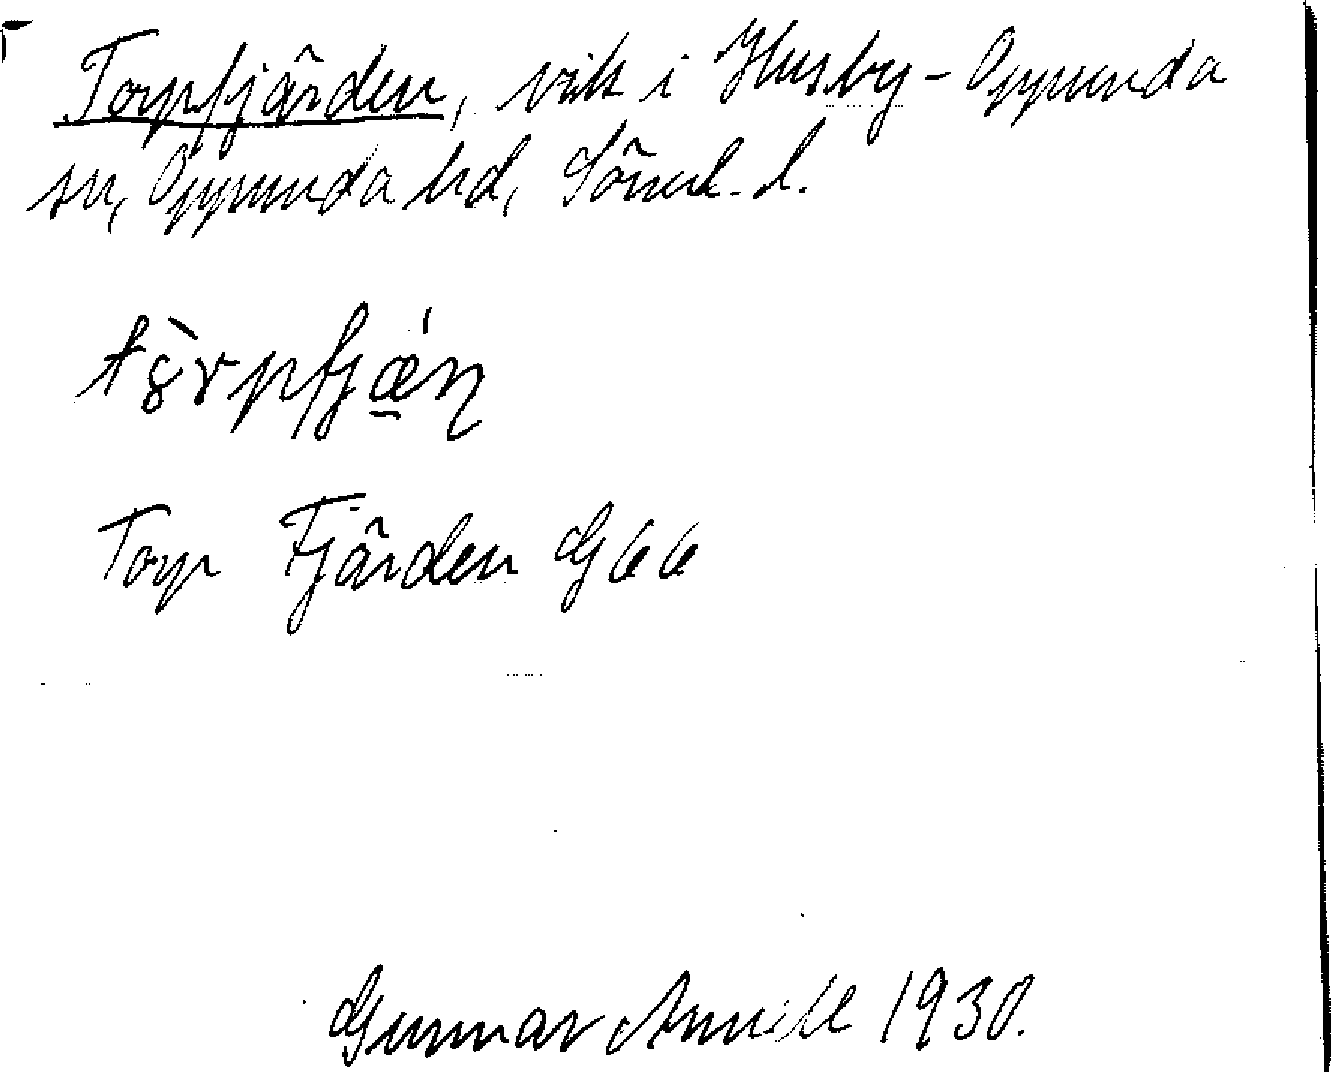 Torpfjärden, vik i Husby-Oppunda
sn, Oppunda hd, Söderml. l.
tȣ̀rpfjǽ̠ṇ
Torp Fjärden G66
Gunnar 1930.